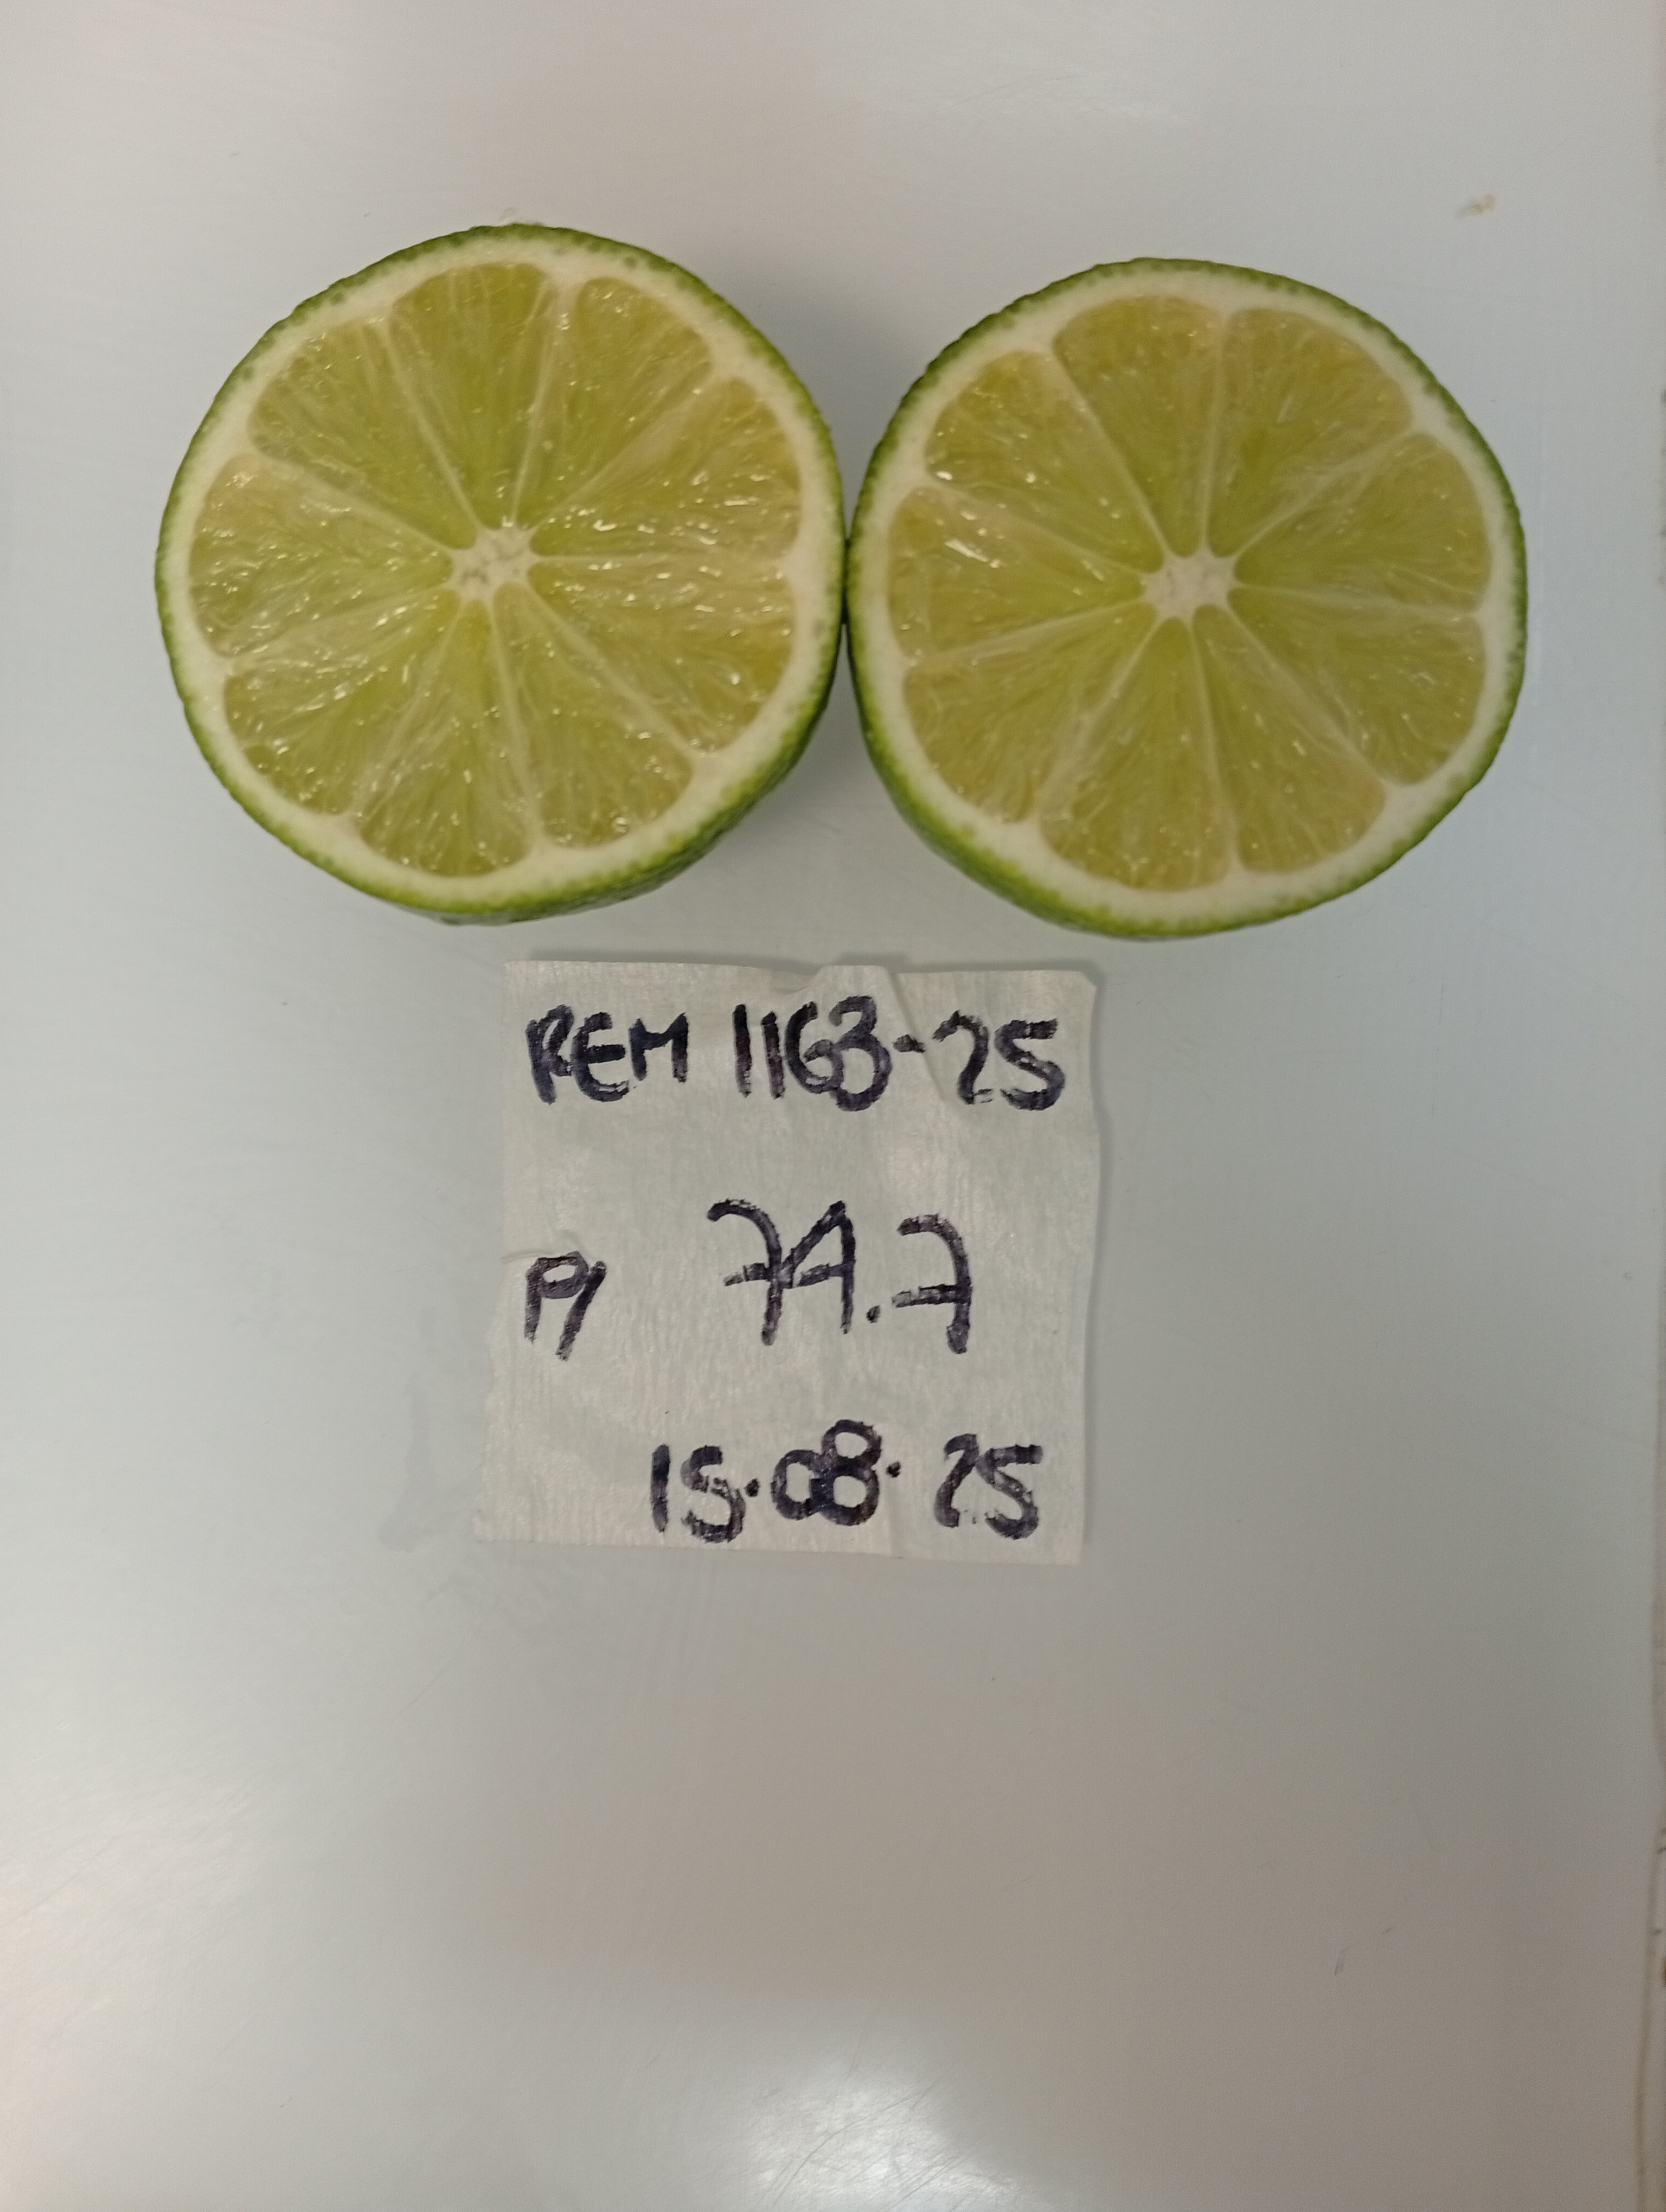 REM 1163-25
P/ 74.7
15.08.25